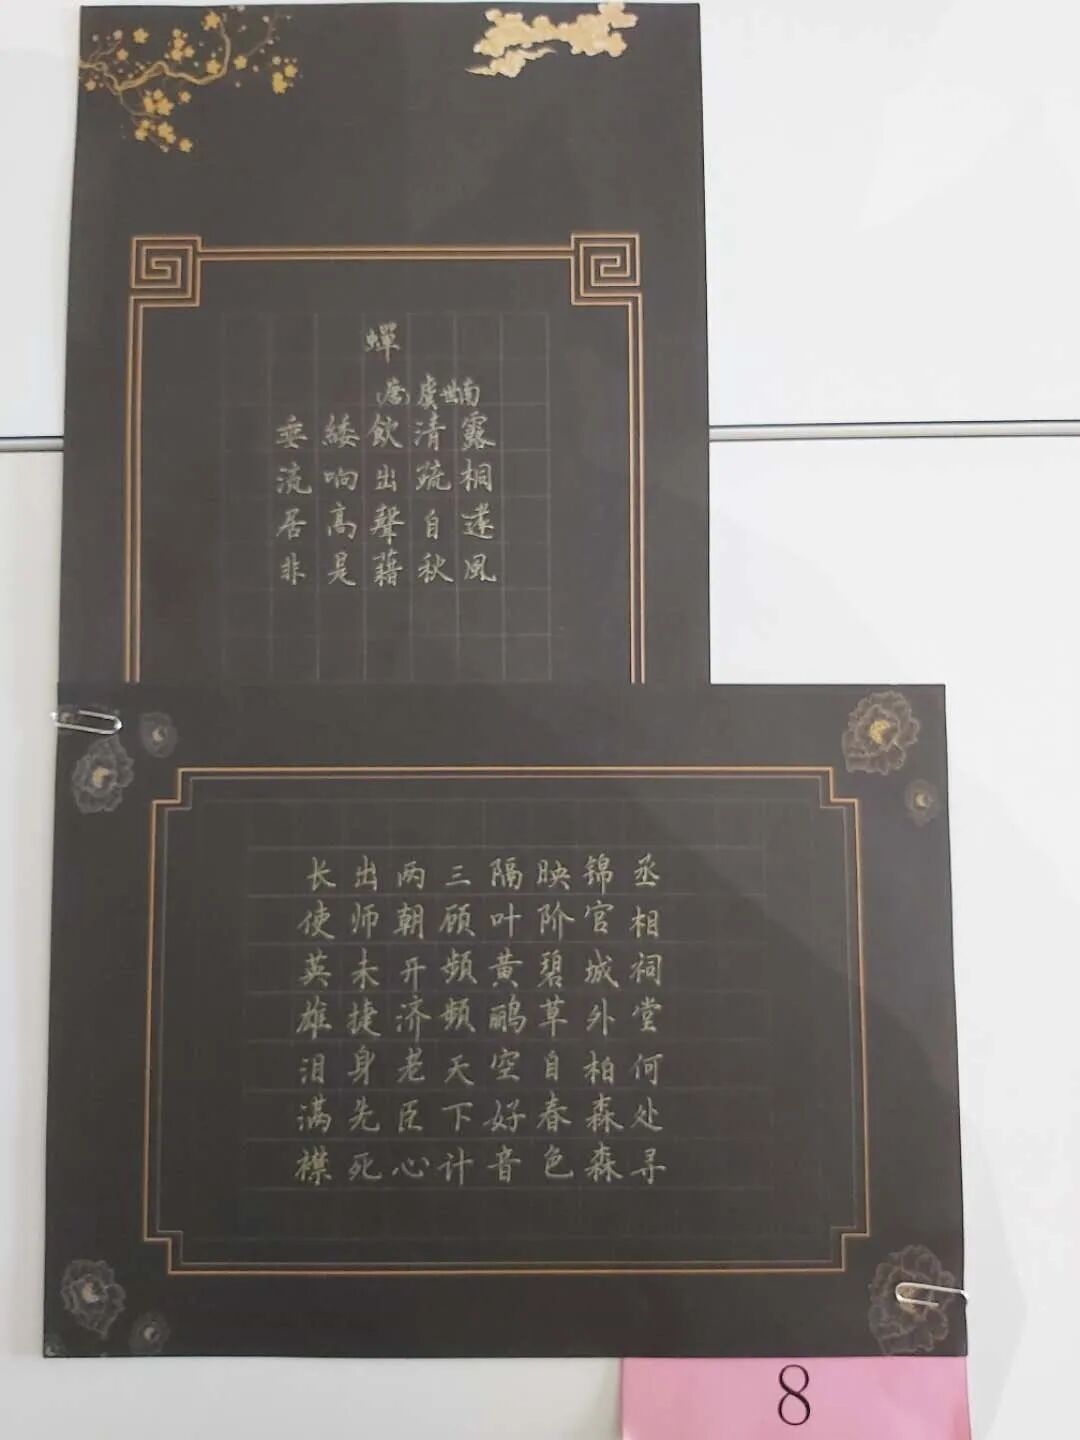 蟬
唐 虞世南
垂緌飲清露
流响出疏桐
居高聲自遠
非是藉秋風
丞相祠堂何处寻
锦官城外柏森森
映阶碧草自春色
隔叶黄鹂空好音
三顾频频天下计
两朝开济老臣心
出师未捷身先死
长使英雄泪满襟
8